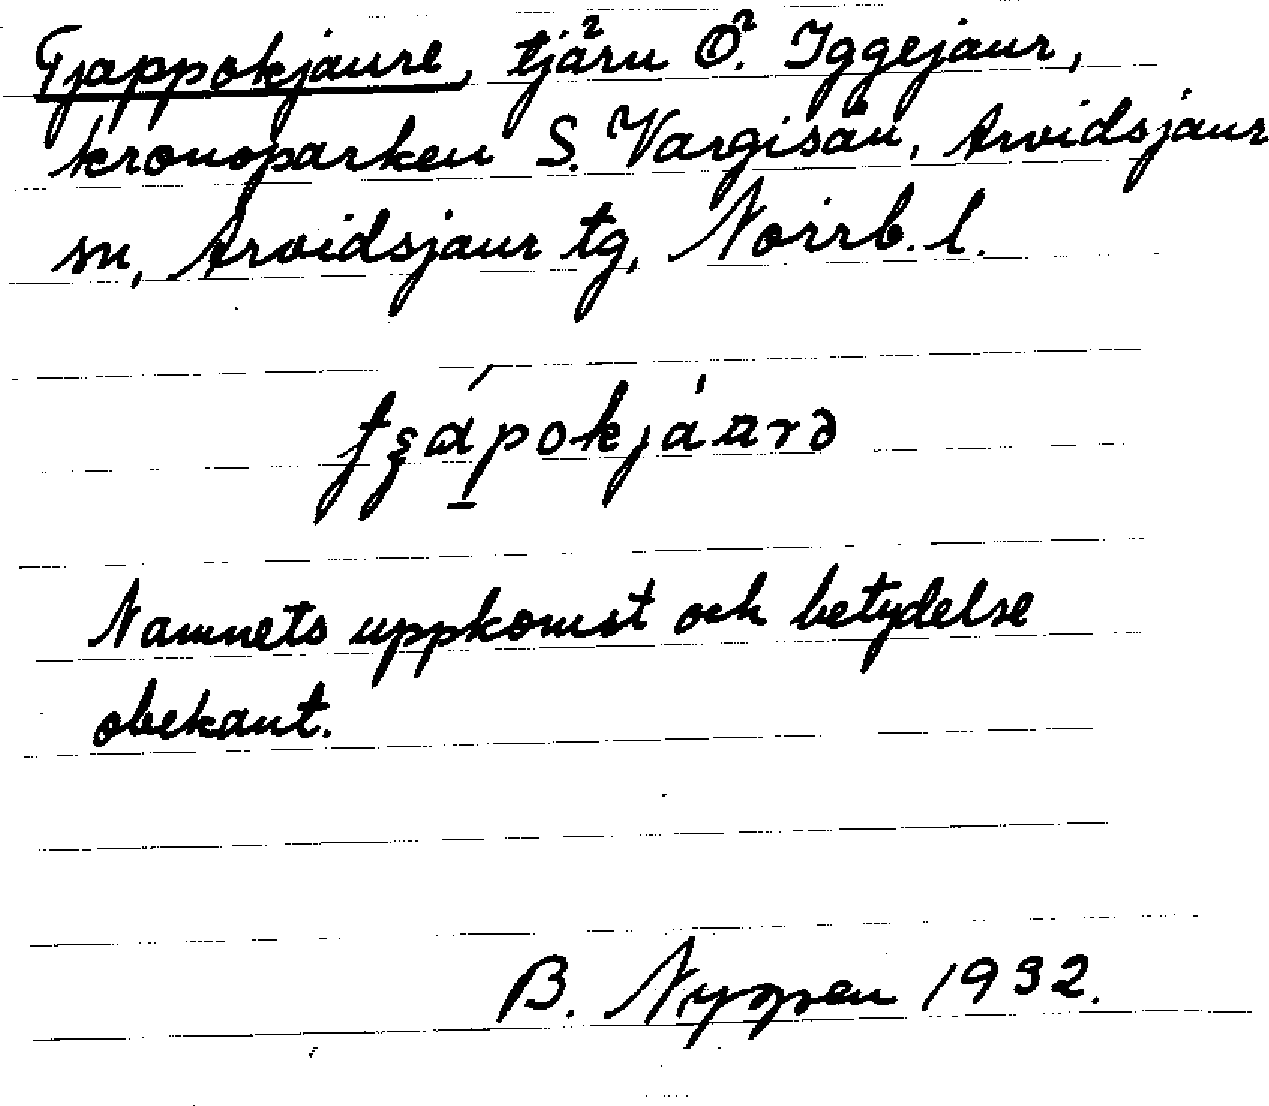 Tjappokjaure, tjärn Ö. Iggejaur,
kronoparken S. Vargisån, Arvidsjaur
sn, Arvidsjaur tg, Norrb. l.
Namnets uppkomst och betydelse
obekant.
B. 1932.